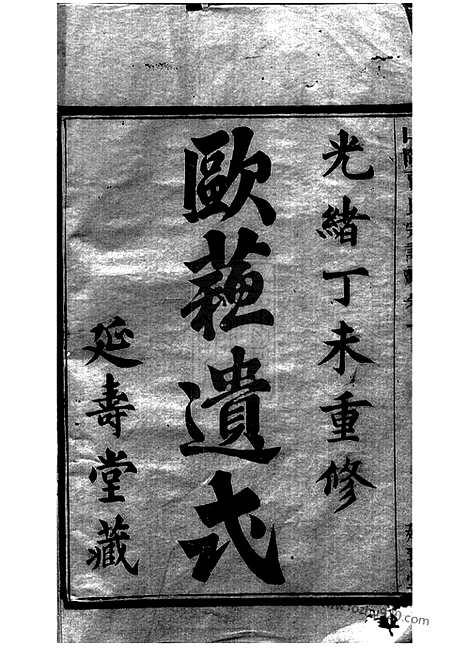 光緒丁未重修
歐蘇遺式
延壽堂藏